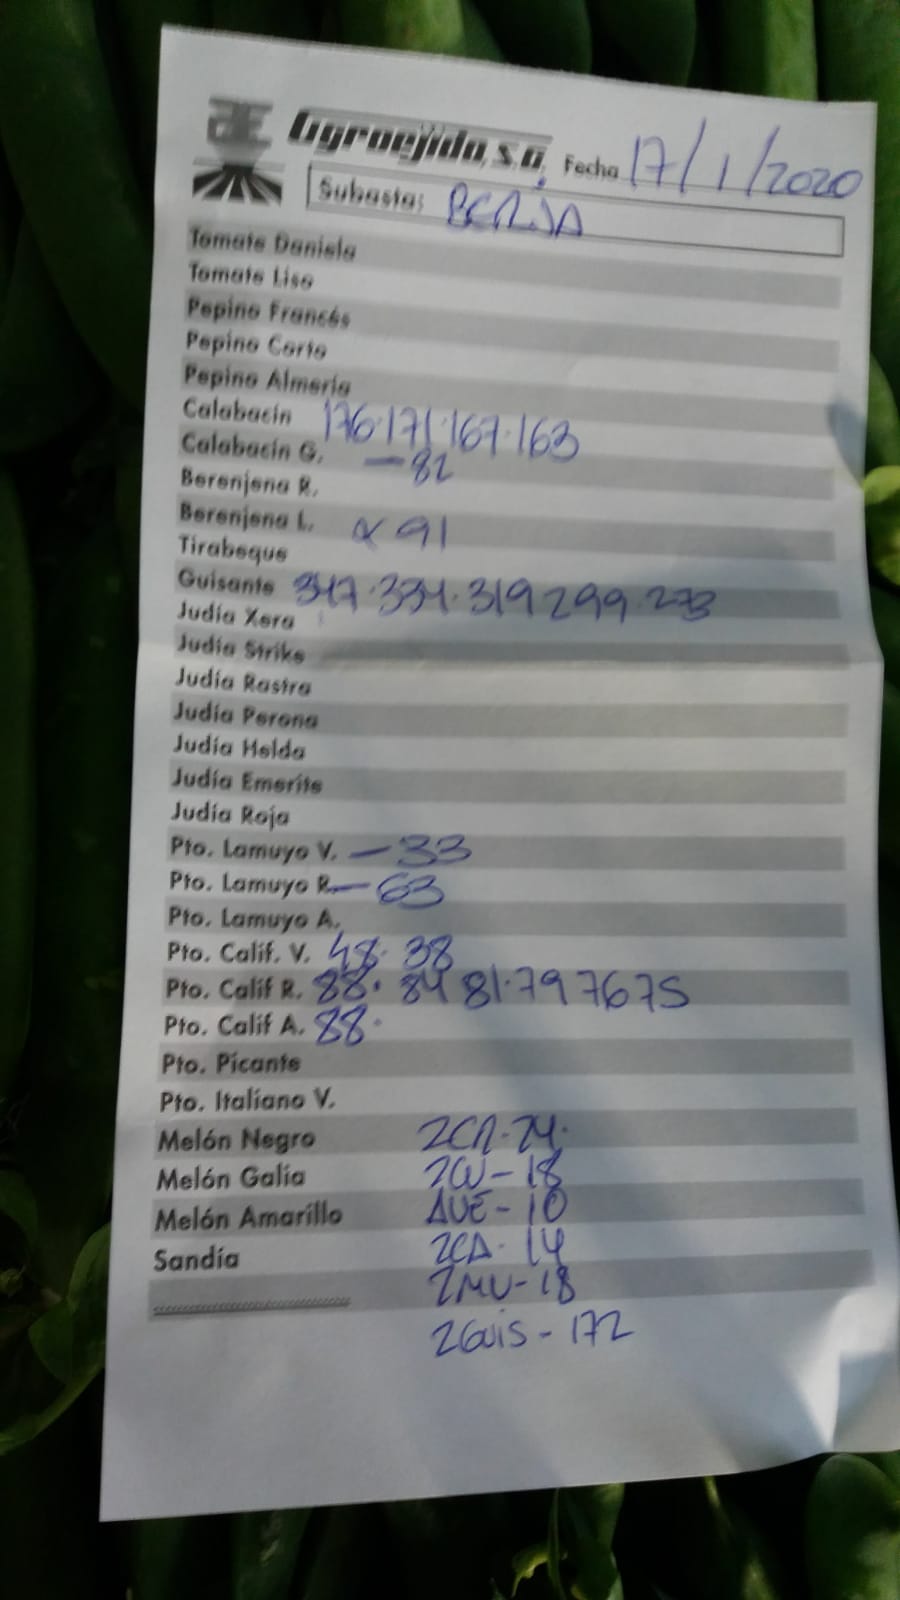 AE Agroejido, S.A. Fecha 17/1/2020
Subasta: BERJA
Tomate Daniela
Tomate Liso
Pepino Francés
Pepino Corto
Pepino Almería
Calabacín 176.171.167.163
Calabacín G. — 82
Berenjena R.
Berenjena L. 91
Tirabeque
Guisante 347.334.319 299.273
Judía Xera
Judía Strike
Judía Rastra
Judía Perona
Judía Helda
Judía Emerite
Judía Roja
Pto. Lamuyo V. — 33
Pto. Lamuyo R. — 63
Pto. Lamuyo A.
Pto. Calif. V. 48. 38
Pto. Calif R. 88. 84 81.79 76 75
Pto. Calif A. 88.
Pto. Picante
Pto. Italiano V.
Melón Negro 2CR-24.
Melón Galia 2CV-18
Melón Amarillo AVE-10
Sandía 2CA-14
2MV-18
2GUIS-172